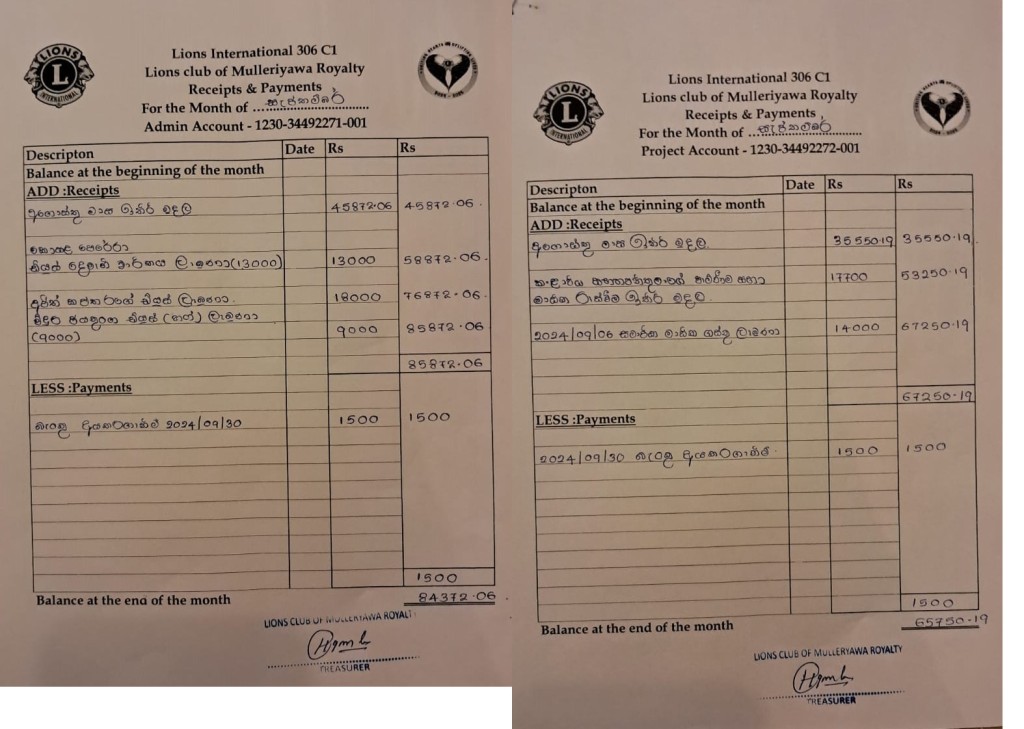 LIONS
L
INTERNATIONAL
Lions International 306 C1
Lions club of Mulleriyawa Royalty
Receipts & Payments
For the Month of ... සැප්තැම්බර්
Admin Account - 1230-34492271-001
Descripton Date Rs Rs
Balance at the beginning of the month
ADD :Receipts
අගෝස්තු මාස ඉතිරි මුදල 45872.06 45872.06
පෙරේරා
ලැබුණා (13000) 13000 58872.06
ලැබුණා 18000 76872.06
ලැබුණා
(9000) 9000 85872.06
85872.06
LESS :Payments
බැංකු අයකරගැනීම් 2024/09/30 1500 1500
1500
Balance at the end of the month 84372.06
LIONS CLUB OF MULLERIYAWA ROYALTY
TREASURER
LIONS
L
INTERNATIONAL
Lions International 306 C1
Lions club of Mulleriyawa Royalty
Receipts & Payments
For the Month of ... සැප්තැම්බර්
Project Account - 1230-34492272-001
Descripton Date Rs Rs
Balance at the beginning of the month
ADD :Receipts
අගෝස්තු මාස ඉතිරි මුදල 35550.19 35550.19
17700 53250.19
ඉතිරි මුදල
2024/09/06 ලැබුණා 14000 67250.19
67250.19
LESS :Payments
2024/09/30 බැංකු අයකරගැනීම් 1500 1500
1500
Balance at the end of the month 65750.19
LIONS CLUB OF MULLERYAWA ROYALTY
TREASURER